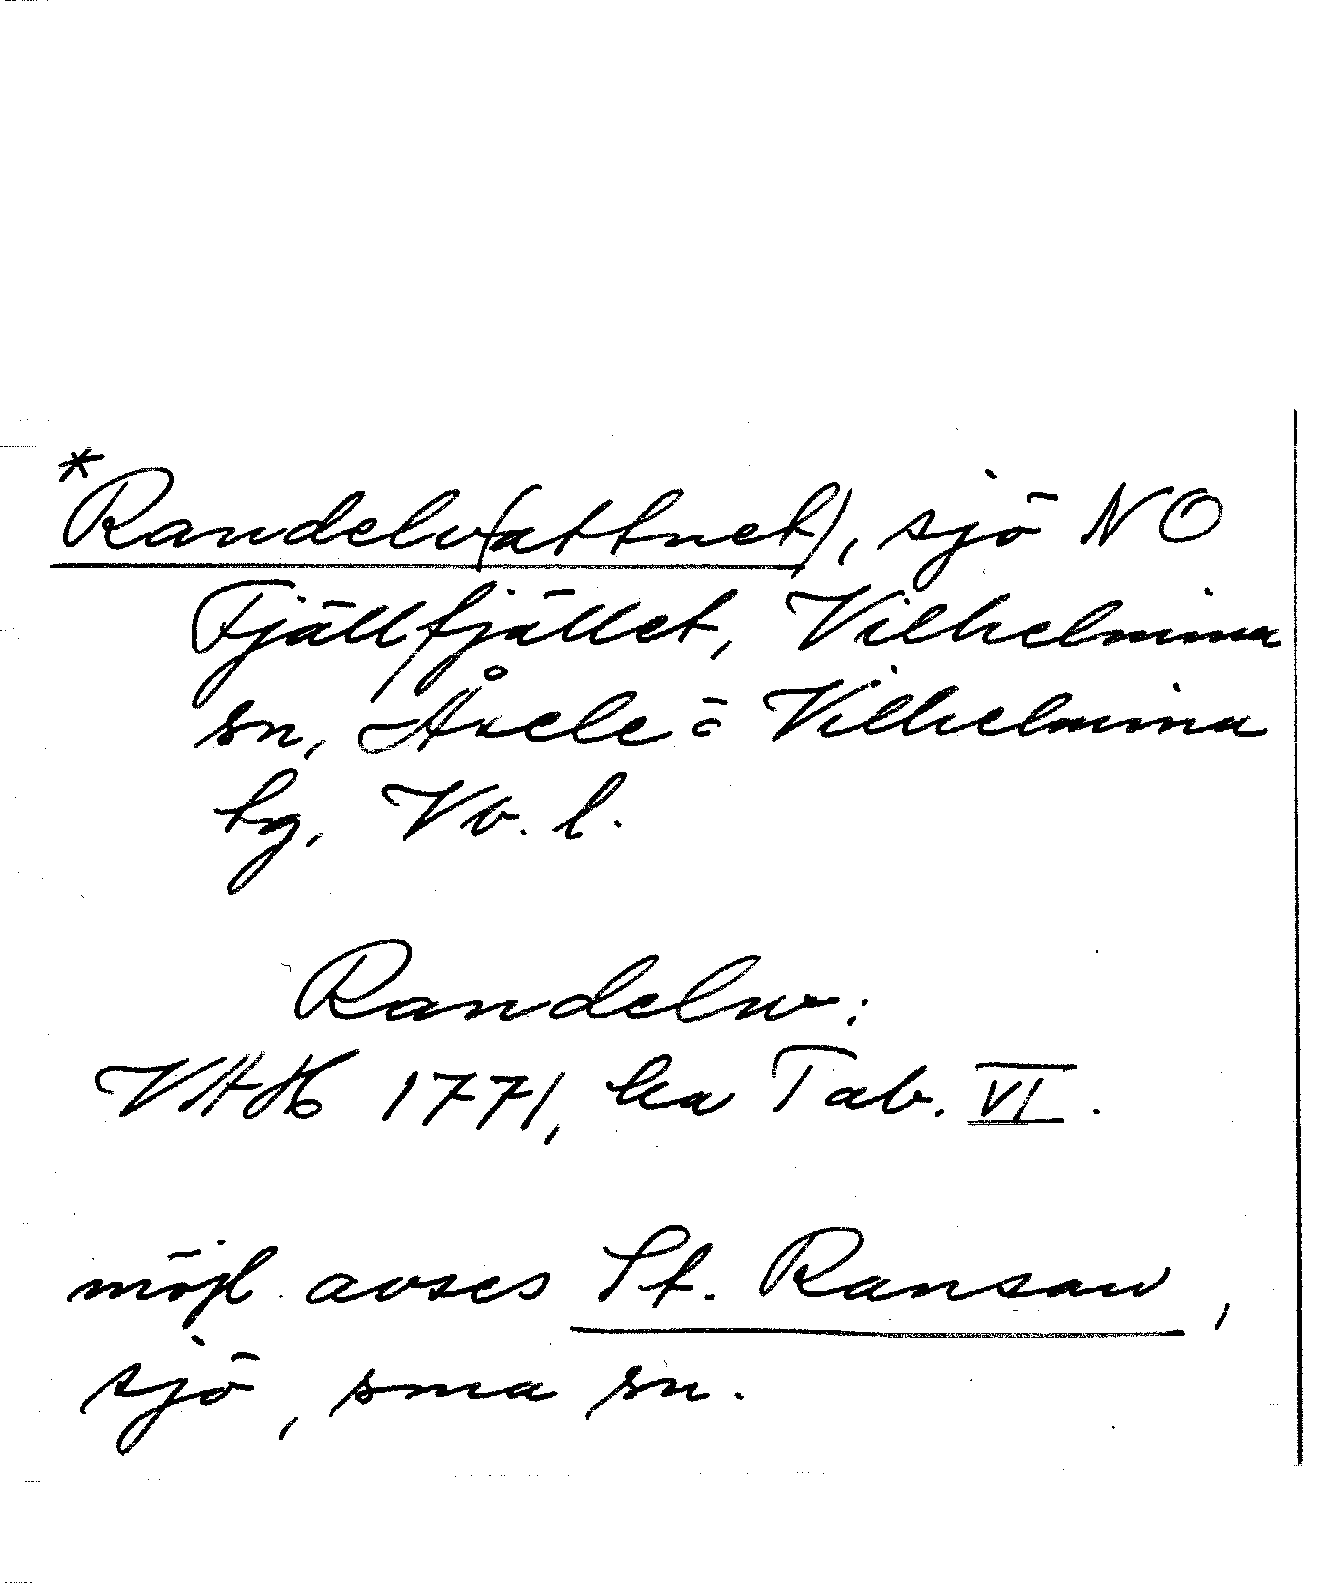 *Randelv(attnet), sjö NO
Fjällfjället, Vilhelmina
sn, Åsele o Vilhelmina
tg, Vb. l.
Randelw:
VAH 1771, ka Tab. VI.
möjl. avses St. Ransaw,
sjö, sma sn.